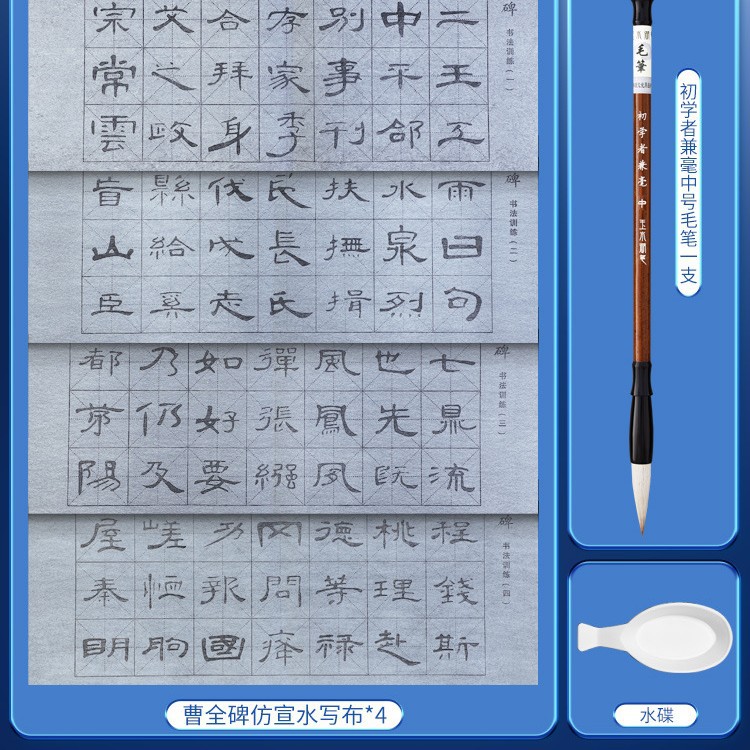 碑 书法训练（一）
二王五
中平郃
别事刊
存家季
合拜身
艾之政
宗常雲
碑 书法训练（二）
雨曰句
水泉烈
扶撫揖
民長氏
伐戊志
縣給奚
山臣
碑 书法训练（三）
七鼎流
也先既
風鳳夙
彈張繦
如好要
乃仍及
都第陽
碑 书法训练（四）
程錢斯
桃理赴
德等禄
网問
功報國
嵯恒朐
屋秦明
曹全碑仿宣水写布*4
毛筆
初学者兼毫 中
初学者兼毫中号毛笔一支
水碟